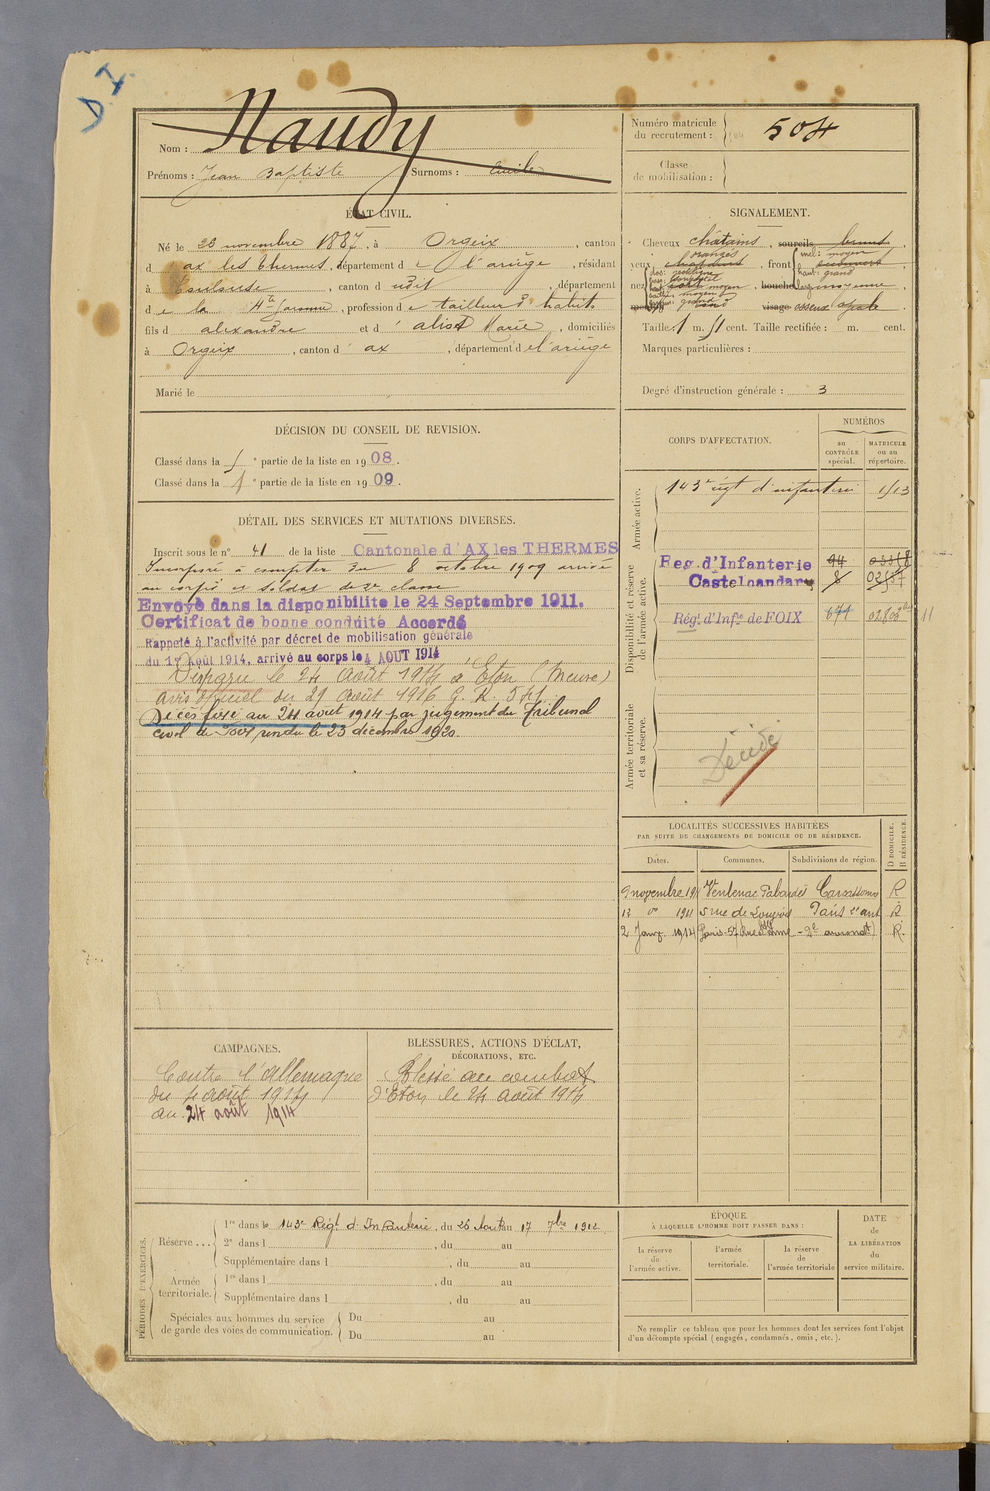 D.I.
Nom : Naudy
Prénoms : Jean Baptiste Surnoms : Emile
Numéro matricule du recrutement : 504
Classe de mobilisation :
ÉTAT CIVIL.
Né le 23 novembre 1887, à Orgeix, canton
d ax les thermes, département de l'ariège, résidant
à Toulouse, canton d udit, département
de la Hte Garonne, profession de tailleur d'habits
fils d alexandre et d' Marie, domiciliés
à Orgeix, canton d' ax, département de l'ariège
Marié le
SIGNALEMENT.
Cheveux châtains, sourcils bruns,
yeux orangés, front incl: moyen
haut: grand
nez dos: moyen, bouche moyenne,
visage ovale
Taille: 1 m. 51 cent. Taille rectifiée : m. cent.
Marques particulières :
Degré d'instruction générale : 3
DÉCISION DU CONSEIL DE REVISION.
Classé dans la 1e partie de la liste en 1908.
Classé dans la 1e partie de la liste en 1909.
CORPS D'AFFECTATION.
NUMÉROS
au CONTRÔLE spécial.
MATRICULE ou au répertoire.
Armée active.
143e régt d'infanterie 1/13
Disponibilité et réserve de l'armée active.
Reg. d'Infanterie
Castelnaudary
Rég. d'Infie de FOIX
Armée territoriale et sa réserve.
Décédé
DÉTAIL DES SERVICES ET MUTATIONS DIVERSES.
Inscrit sous le n° 41 de la liste Cantonale d'AX les THERMES
Incorporé à compter du 8 octobre 1909 arrivé
au corps et soldat de 2e classe
Envoyé dans la disponibilite le 24 Septembre 1911.
Certificat de bonne conduite Accordé
Rappelé à l'activité par décret de mobilisation générale
du 1er Août 1914, arrivé au corps le 4 AOUT 1914
Disparu le 24 Août 1914 à Eton (Meuse)
avis officiel du 29 Août 1916 G. R. 541.
Décès fixé au 24 août 1914 par jugement du Tribunal
civil de Foix rendu le 23 décembre 1920.
LOCALITÉS SUCCESSIVES HABITÉES
PAR SUITE DE CHANGEMENTS DE DOMICILE OU DE RÉSIDENCE.
Dates. Communes. Subdivisions de région. D DOMICILE. R RÉSIDENCE.
9 novembre 1911 Ventenac Cabardès Carcassonne R
13 do 1911 5 rue de Louvois Paris 2e arrt R
2 Janvr 1914 Paris 2e arrondt R.
CAMPAGNES.
Contre l'Allemagne
du 4 août 1914
au 24 août 1914
BLESSURES, ACTIONS D'ÉCLAT,
DÉCORATIONS, ETC.
Blessé au combat
d'Eton le 24 Août 1914
PÉRIODES D'EXERCICES.
Réserve ... 1re dans le 143e Régt d'Infanterie, du 26 Aout au 17 7bre 1912
2e dans l , du au
Supplémentaire dans l , du au
Armée territoriale. 1re dans l , du au
Supplémentaire dans l , du au
Spéciales aux hommes du service de garde des voies de communication. Du au
Du au
ÉPOQUE
À LAQUELLE L'HOMME DOIT PASSER DANS :
la réserve de l'armée active.
l'armée territoriale.
la réserve de l'armée territoriale
DATE de LA LIBÉRATION du service militaire.
Ne remplir ce tableau que pour les hommes dont les services font l'objet
d'un décompte spécial (engagés, condamnés, omis, etc.).